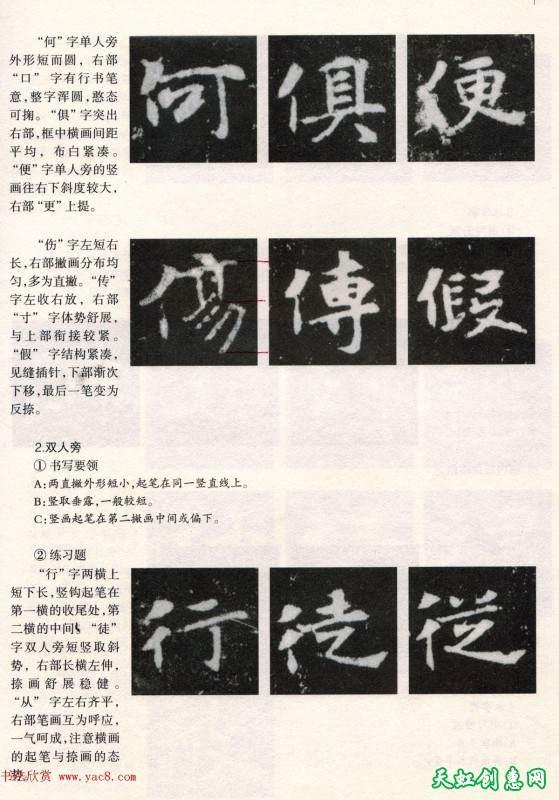 “何”字单人旁
外形短而圆，右部
“口”字有行书笔
意，整字浑圆，憨态
可掬。“俱”字突出
右部，框中横画间距
平均，布白紧凑。
“便”字单人旁的竖
画往右下斜度较大，
右部“更”上提。
何 俱 便
“伤”字左短右
长，右部撇画分布均
匀，多为直撇。“传”
字左收右放，右部
“寸”字体势舒展，
与上部衔接较紧。
“假”字结构紧凑，
见缝插针，下部渐次
下移，最后一笔变为
反捺。
傷 傳 假
2.双人旁
① 书写要领
A:两直撇外形短小，起笔在同一竖直线上。
B:竖取垂露，一般较短。
C:竖画起笔在第二撇画中间或偏下。
② 练习题
“行”字两横上
短下长，竖钩起笔在
第一横的收尾处，第
二横的中间。“徒”
字双人旁短竖取斜
势，右部长横左伸，
捺画舒展稳健。
“从”字左右齐平，
右部笔画互为呼应，
一气呵成，注意横画
的起笔与捺画的态
势。
行 徒 從
书法欣赏 www.yac8.com
天虹创意网